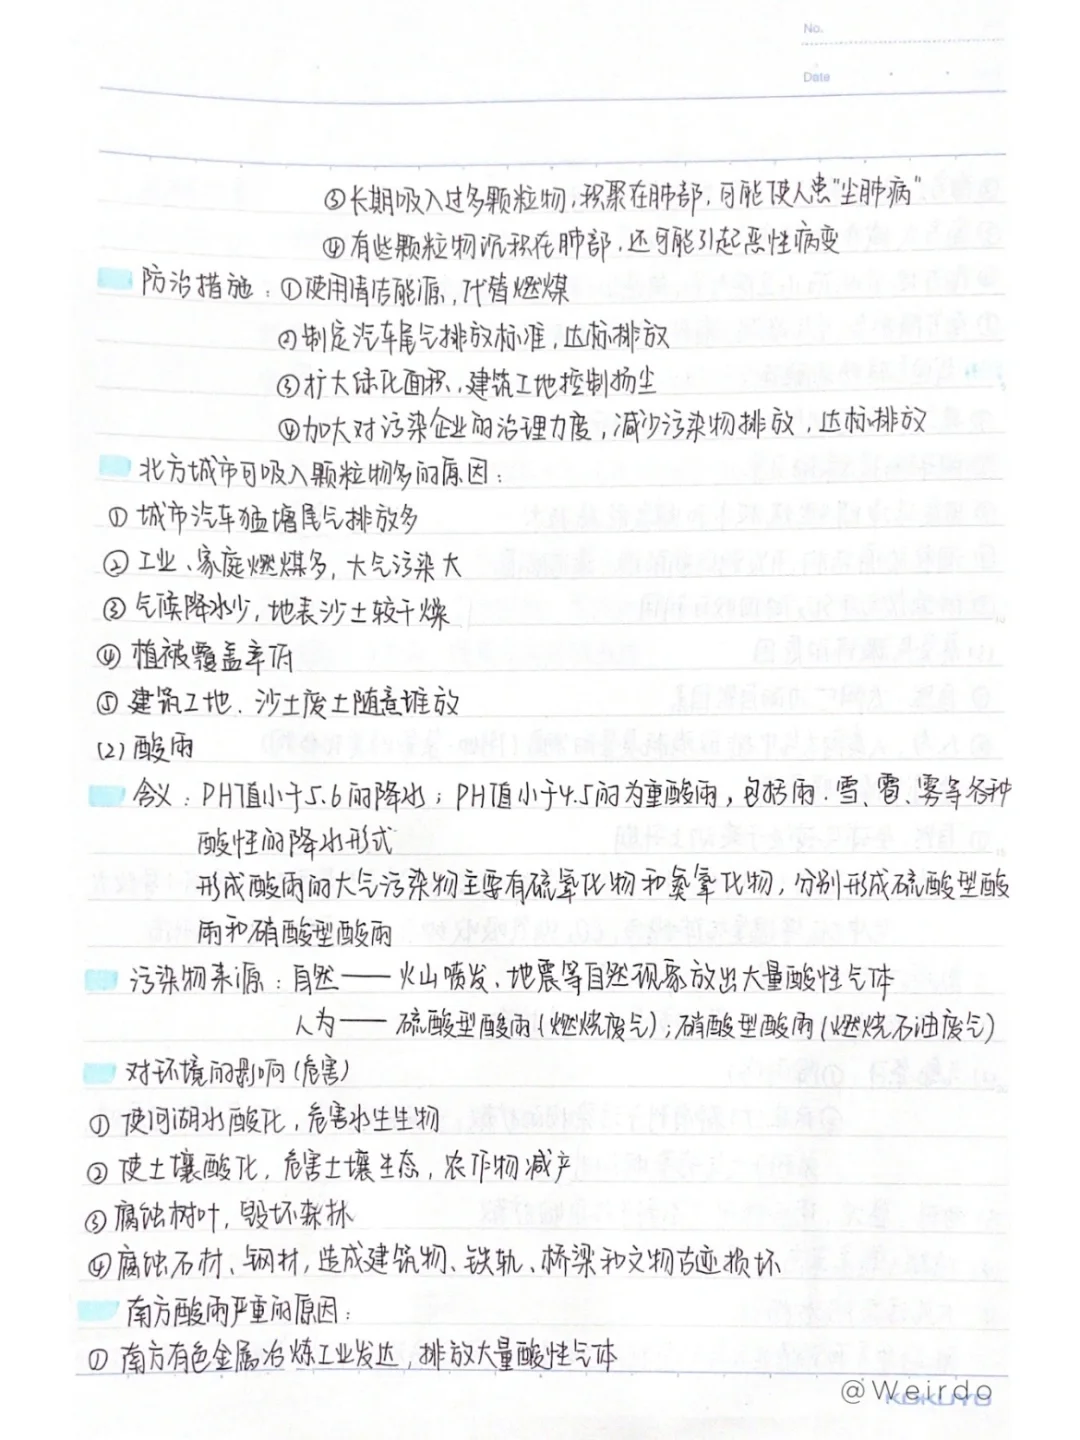 No.
Date
③长期吸入过多颗粒物,积聚在肺部,可能使人患"尘肺病"
④有些颗粒物沉积在肺部,还可能引起恶性病变
防治措施:①使用清洁能源,代替燃煤
②制定汽车尾气排放标准,达标排放
③扩大绿化面积,建筑工地控制扬尘
④加大对污染企业的治理力度,减少污染物排放,达标排放
北方城市可吸入颗粒物多的原因:
①城市汽车猛增尾气排放多
②工业、家庭燃煤多,大气污染大
③气候降水少,地表沙土较干燥
④植被覆盖率低
⑤建筑工地、沙土废土随意堆放
(2)酸雨
含义:PH值小于5.6的降水;PH值小于4.5的为重酸雨,包括雨、雪、雹、雾等各种
酸性的降水形式
形成酸雨的大气污染物主要有硫氧化物和氮氧化物,分别形成硫酸型酸
雨和硝酸型酸雨
污染物来源:自然——火山喷发、地震等自然现象放出大量酸性气体
人为——硫酸型酸雨(燃烧废气);硝酸型酸雨(燃烧石油废气)
对环境的影响(危害)
①使河湖水酸化,危害水生生物
②使土壤酸化,危害土壤生态,农作物减产
③腐蚀树叶,毁坏森林
④腐蚀石材、钢材,造成建筑物、铁轨、桥梁和文物古迹损坏
南方酸雨严重的原因:
①南方有色金属冶炼工业发达,排放大量酸性气体
@Weirdo
KOKUYO